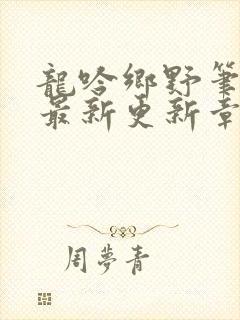 龍吟鄉野筆
最新更新章
周夢青